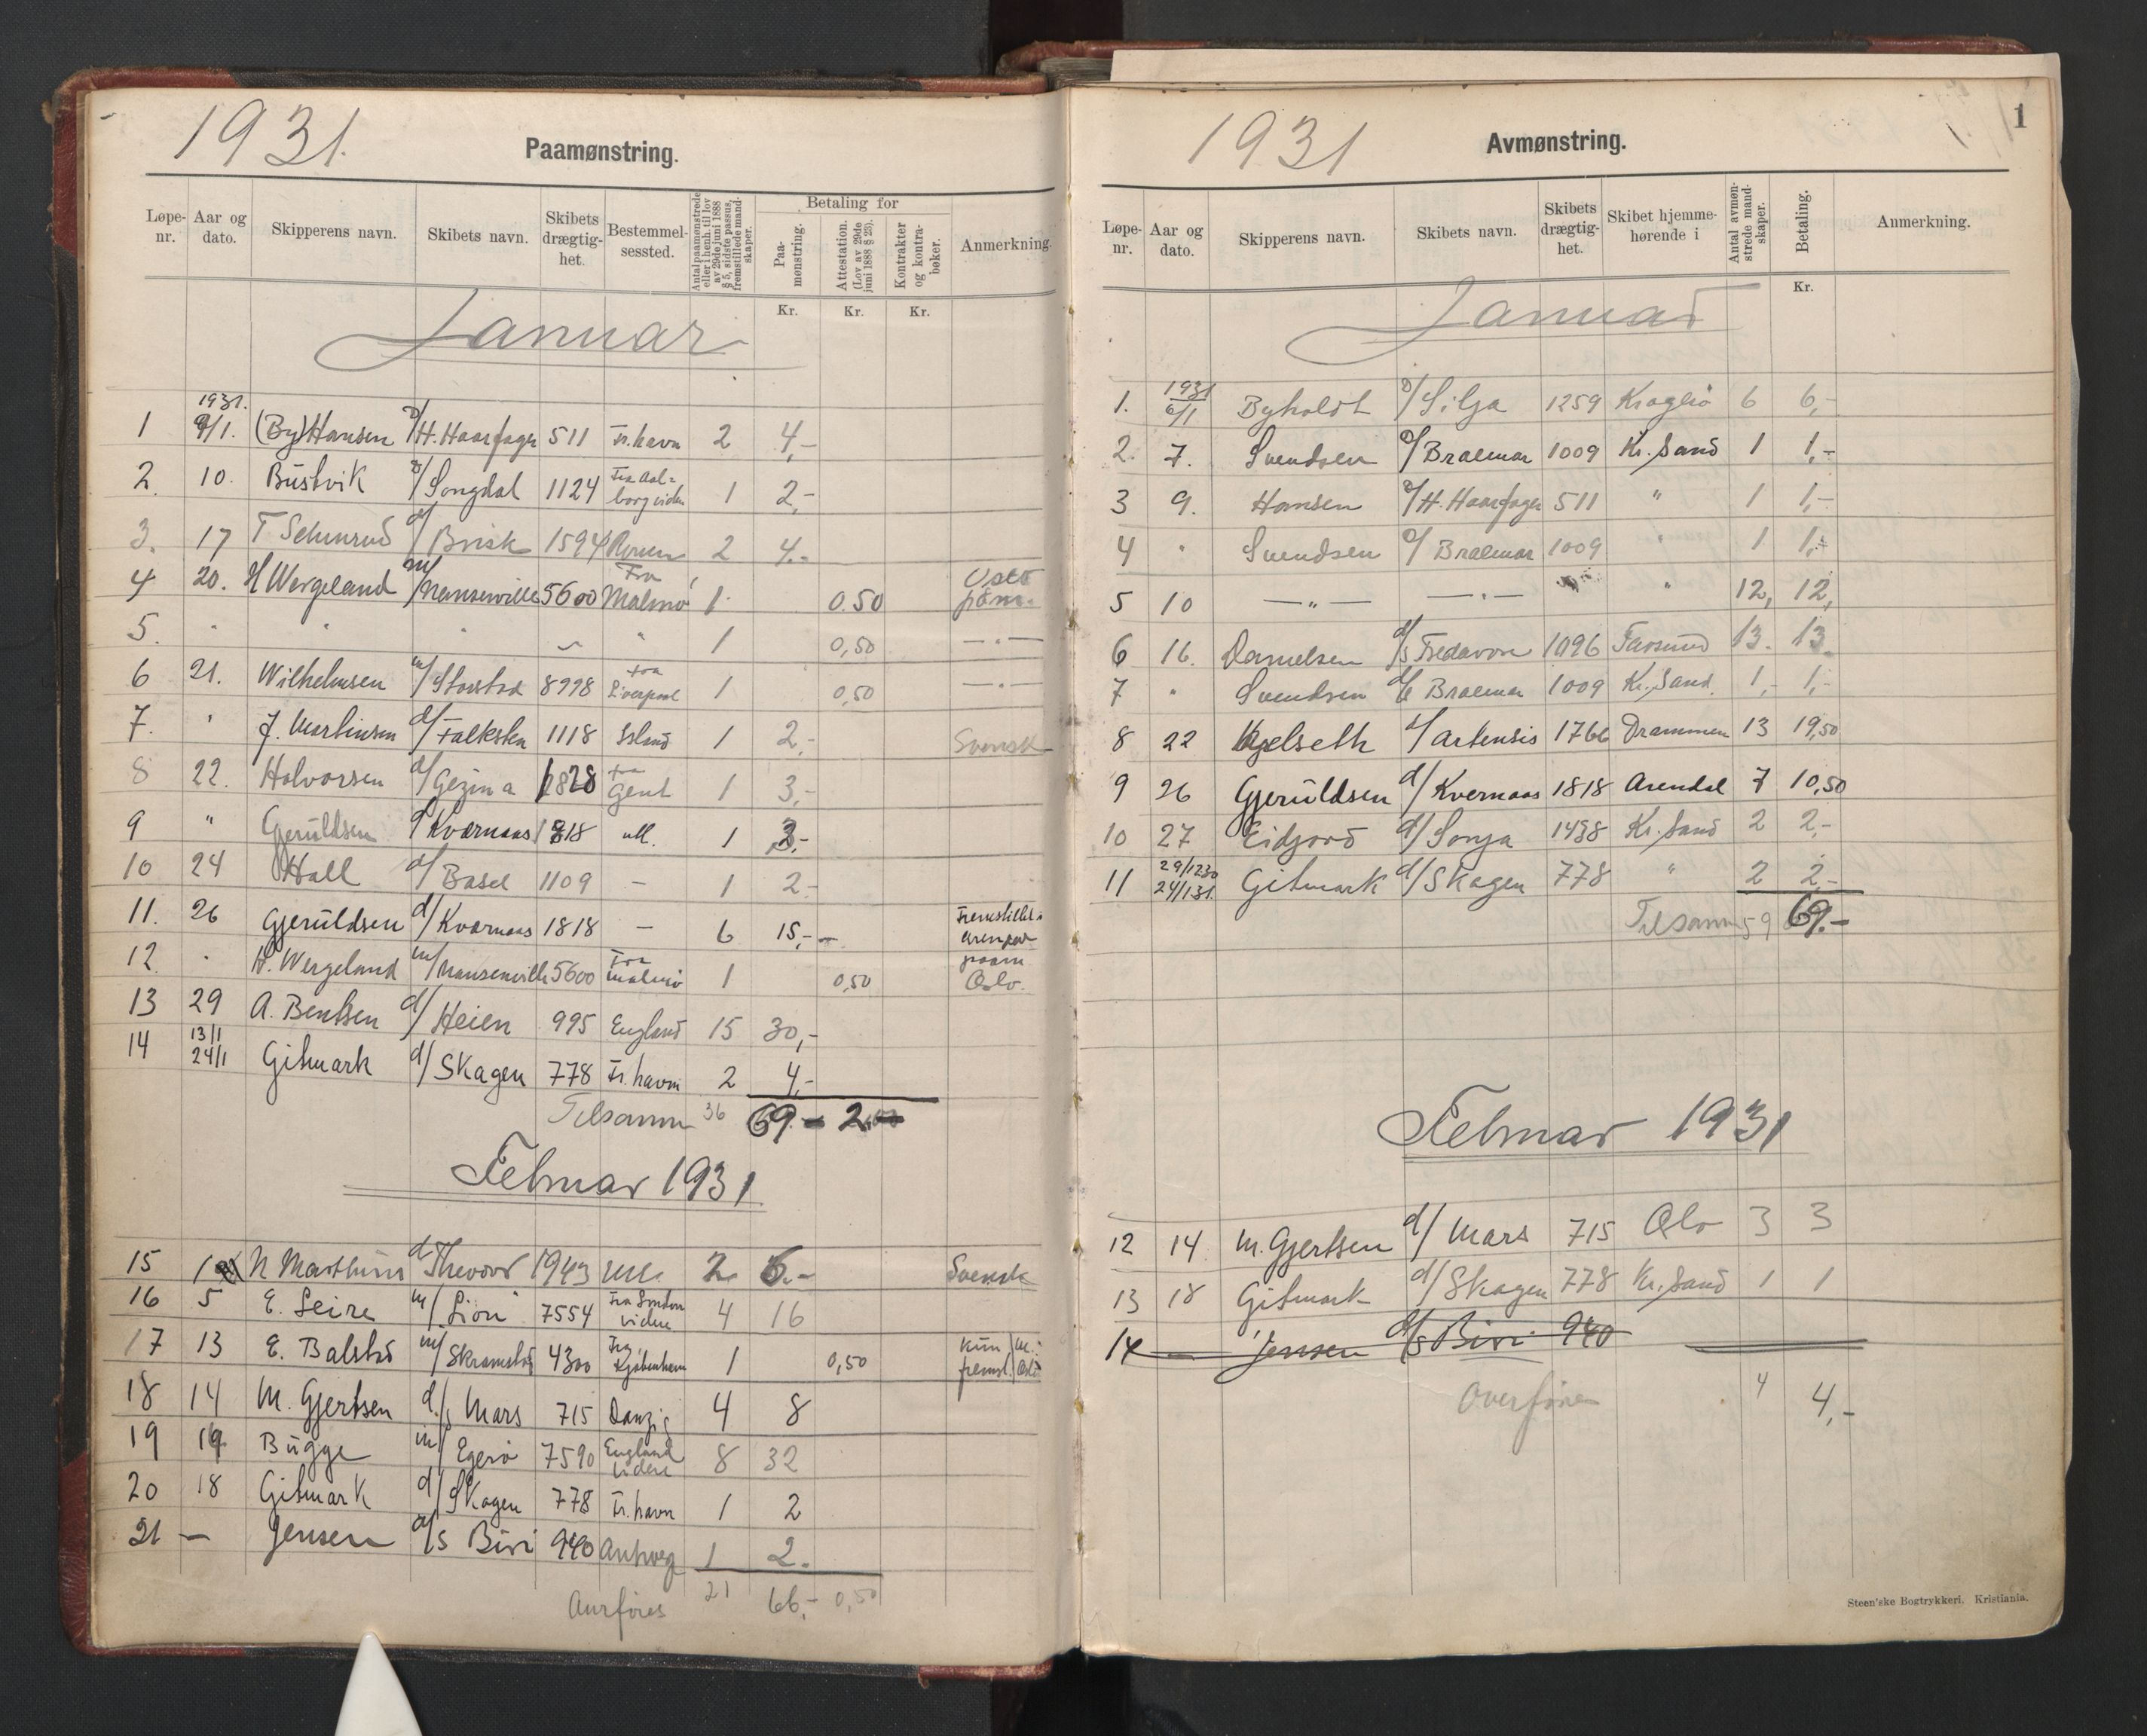 1931.
Paamønstring.
Løpe-nr. Aar og dato. Skipperens navn. Skibets navn. Skibets drægtig-het. Bestemmel-sessted. Antal paamønstrede eller i henh. til lov av 29de juni 1888 § 5, sidste passus, fremstillede mand-skaper. Betaling for Paa-mønstring. Attestation. (Lov av 29de juni 1888 § 23). Kontrakter og kontra-bøker. Anmerkning.
Kr. Kr. Kr.
Januar
1 1931. 9/1. (By) Hansen d/ H. Haarfager 511 Fr. havn 2 4,-
2. 10. Bustvik d/ Songdal 1124 Fra Aal-borg viden 1 2,-
3. 17 T d/ Brisk 1594 Rouen 2 4.-
4 20. H Wergeland m/ Nansenville 5600 Fra Malmö 1 0.50 Oslo
5. " " " " 1 0,50 —"—
6 21. Wilhelmsen m/ Storstad 8998 fra Liverpool 1 0,50 —"—
7. " J. Martinsen d/ Falksten 1118 Island 1 2,- Svensk
8 22. Halvorsen d/ Gezina 1828 fra Gent 1 3,-
9 " Gjeruldsen d/ Kvernaas 1818 utl. 1 3,-
10 24 Hall d/ Basel 1109 — 1 2,-
11. 26 Gjeruldsen d/ Kvernaas 1818 — 6 15,-
12. " H. Wergeland m/ Nansenville 5600 Fra Malmö 1 0,50 Oslo.
13 29 A. Bentsen d/ Heien 995 England 15 30,-
14 13/1 24/1 Gitmark d/ Skagen 778 Fr. havn 2 4,-
Tilsamm 36 69.- 2.00
Februar 1931
15 N Marthins d Theodor 1943 utl. 2 6.- Svensk
16 5 E. Seire m/ Lion 7554 Fra London videre 4 16
17 13 E. Balstad m/ Skramstad 4300 Fra Kjøbenhavn 1 0,50 kun fremst.
18 14 M. Gjertsen d/s Mars 715 Danzig 4 8
19 14 Bugge m/ Egerö 7590 England videre 8 32
20 18 Gitmark d/ Skagen 778 Fr. havn 1 2
21 — Jensen d/s Biri 940 Antwerp 1 2.
21 66,- 0,50
1
1931
Avmønstring.
Løpe-nr. Aar og dato. Skipperens navn. Skibets navn. Skibets drægtig-het. Skibet hjemme-hørende i Antal avmøn-strede mand-skaper. Betaling. Anmerkning.
Kr.
Januar
1. 1931 6/1 Byholdt d/ Silja 1259 Kragerö 6 6,-
2. 7. Svendsen d/ Braemar 1009 Kr. Sand 1 1,-
3 9. Hansen d/ H. Haarfager 511 " 1 1,-
4 " Svendsen d/ Braemar 1009 " 1 1,-
5 10 —"— —"— " 12, 12,
6 16. Danielsen d/s Fredavore 1096 Farsund 13. 13.
7 " Svendsen d/s Braemar 1009 Kr. Sand. 1,- 1,-
8 22 Kjelseth d/ Artensis 1766 Drammen 13 19,50
9 26 Gjeruldsen d/ Kvernaas 1818 Arendal 7 10,50
10 27 Eidjord d/ Sonja 1498 Kr. Sand 2 2,-
11 29/12 30 24/1 31. Gitmark d/ Skagen 778 " 2 2,-
Tilsamm 59 69.-
Februar 1931
12 14. M. Gjertsen d/ Mars 715 Oslo 3 3
13 18 Gitmark d/ Skagen 778 Kr. Sand 1 1
14 — Jensen d/s Biri 940
Overföres 4 4,-
Steen'ske Bogtrykkeri. Kristiania.